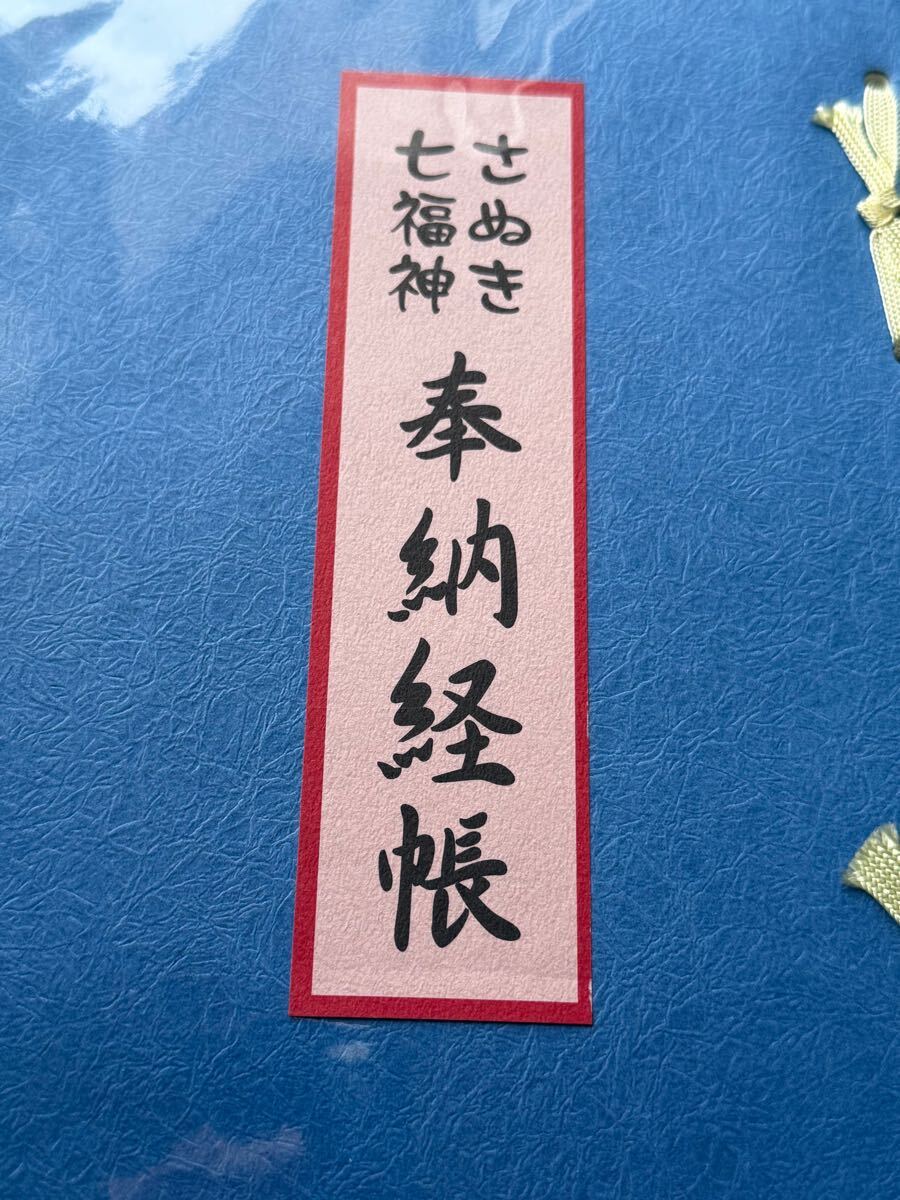 さぬき
七福神
奉納経帳